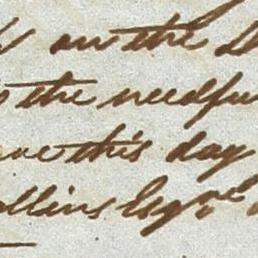 on the
the needfu
this day
ollins Esqre